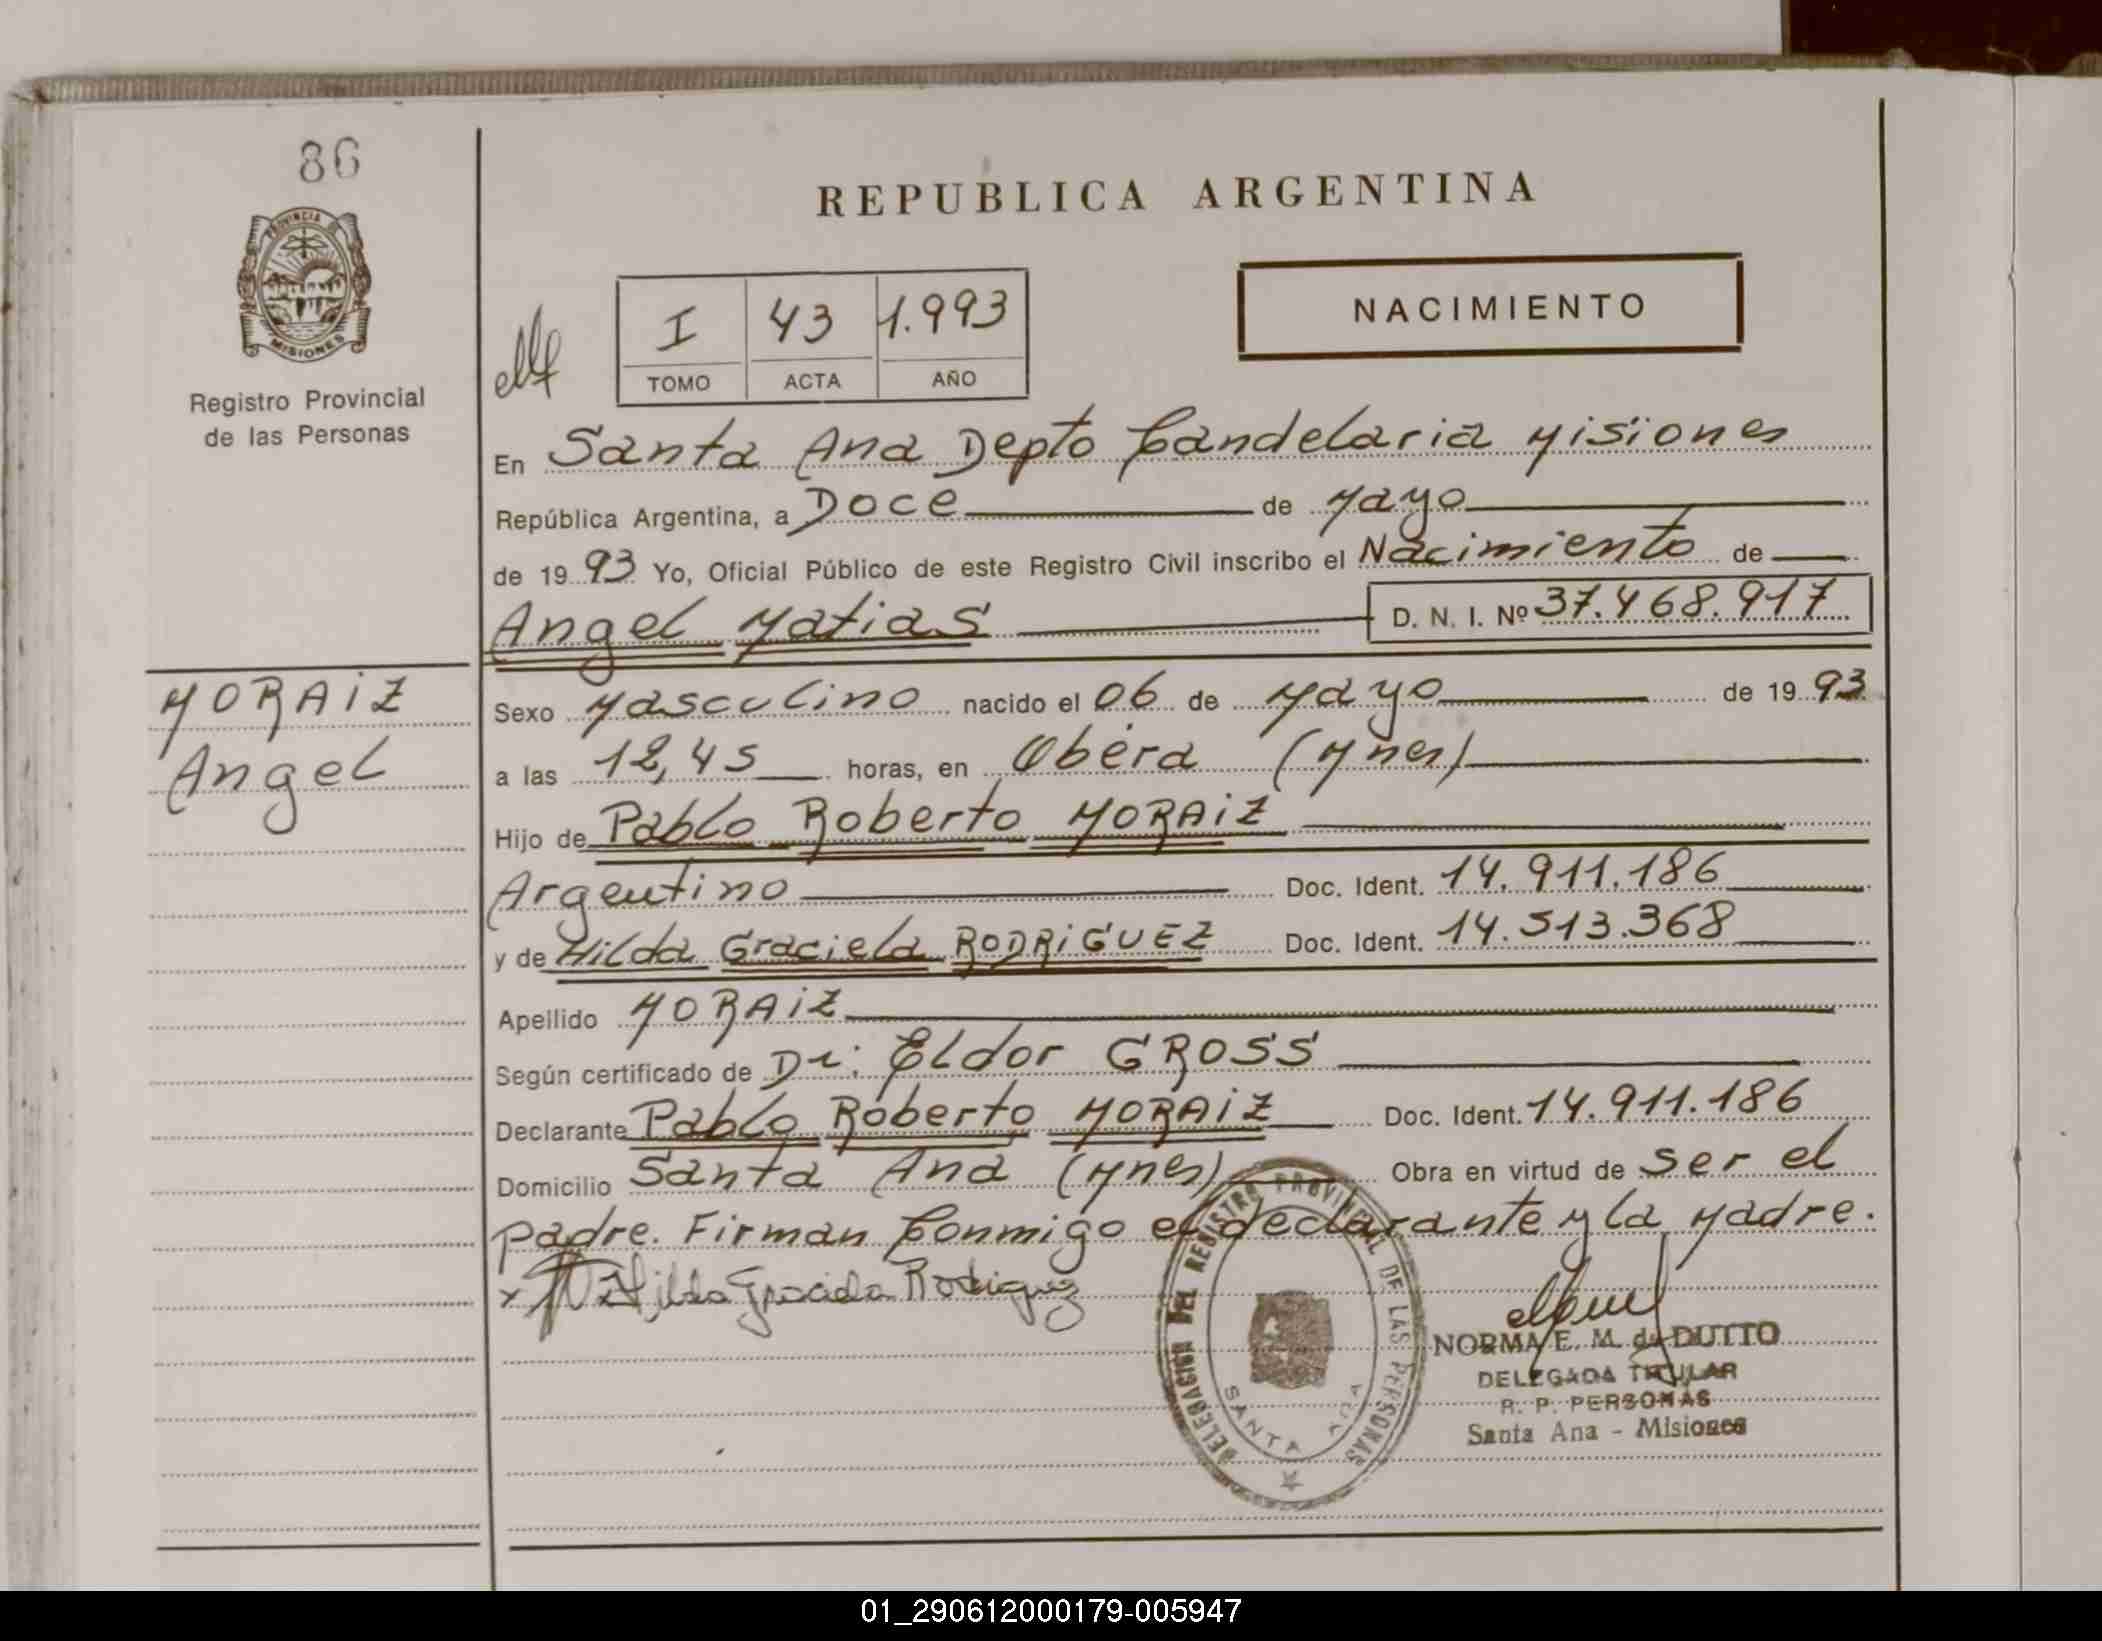 86
REPUBLICA ARGENTINA
PROVINCIA
MISIONES
Registro Provincial
de las Personas
I 43 1.993
TOMO ACTA AÑO
NACIMIENTO
En Santa Ana Depto Candelaria Misiones
República Argentina, a Doce de Mayo
de 1993 Yo, Oficial Público de este Registro Civil inscribo el Nacimiento de
Angel Matias D. N. I. Nº 37.468.917
MORAiZ
Angel
Sexo Masculino nacido el 06 de Mayo de 1993
a las 12,45 horas, en Oberá (Mnes)
Hijo de Pablo Roberto MORAiZ
Argentino Doc. Ident. 14.911.186
y de Hilda Graciela RODRiGUEZ Doc. Ident. 14.513.368
Apellido MORAiZ
Según certificado de Dr: Eldor GROSS
Declarante Pablo Roberto MORAiZ Doc. Ident. 14.911.186
Domicilio Santa Ana (Mnes) Obra en virtud de ser el
padre. Firman Conmigo el declarante y la Madre.
Hilda Graciela Rodriguez
DELEGACIÓN DEL REGISTRO PROVINCIAL DE LAS PERSONAS
SANTA ANA
NORMA E. M. de DUTTO
DELEGADA TITULAR
R. P. PERSONAS
Santa Ana - Misiones
01_290612000179-005947